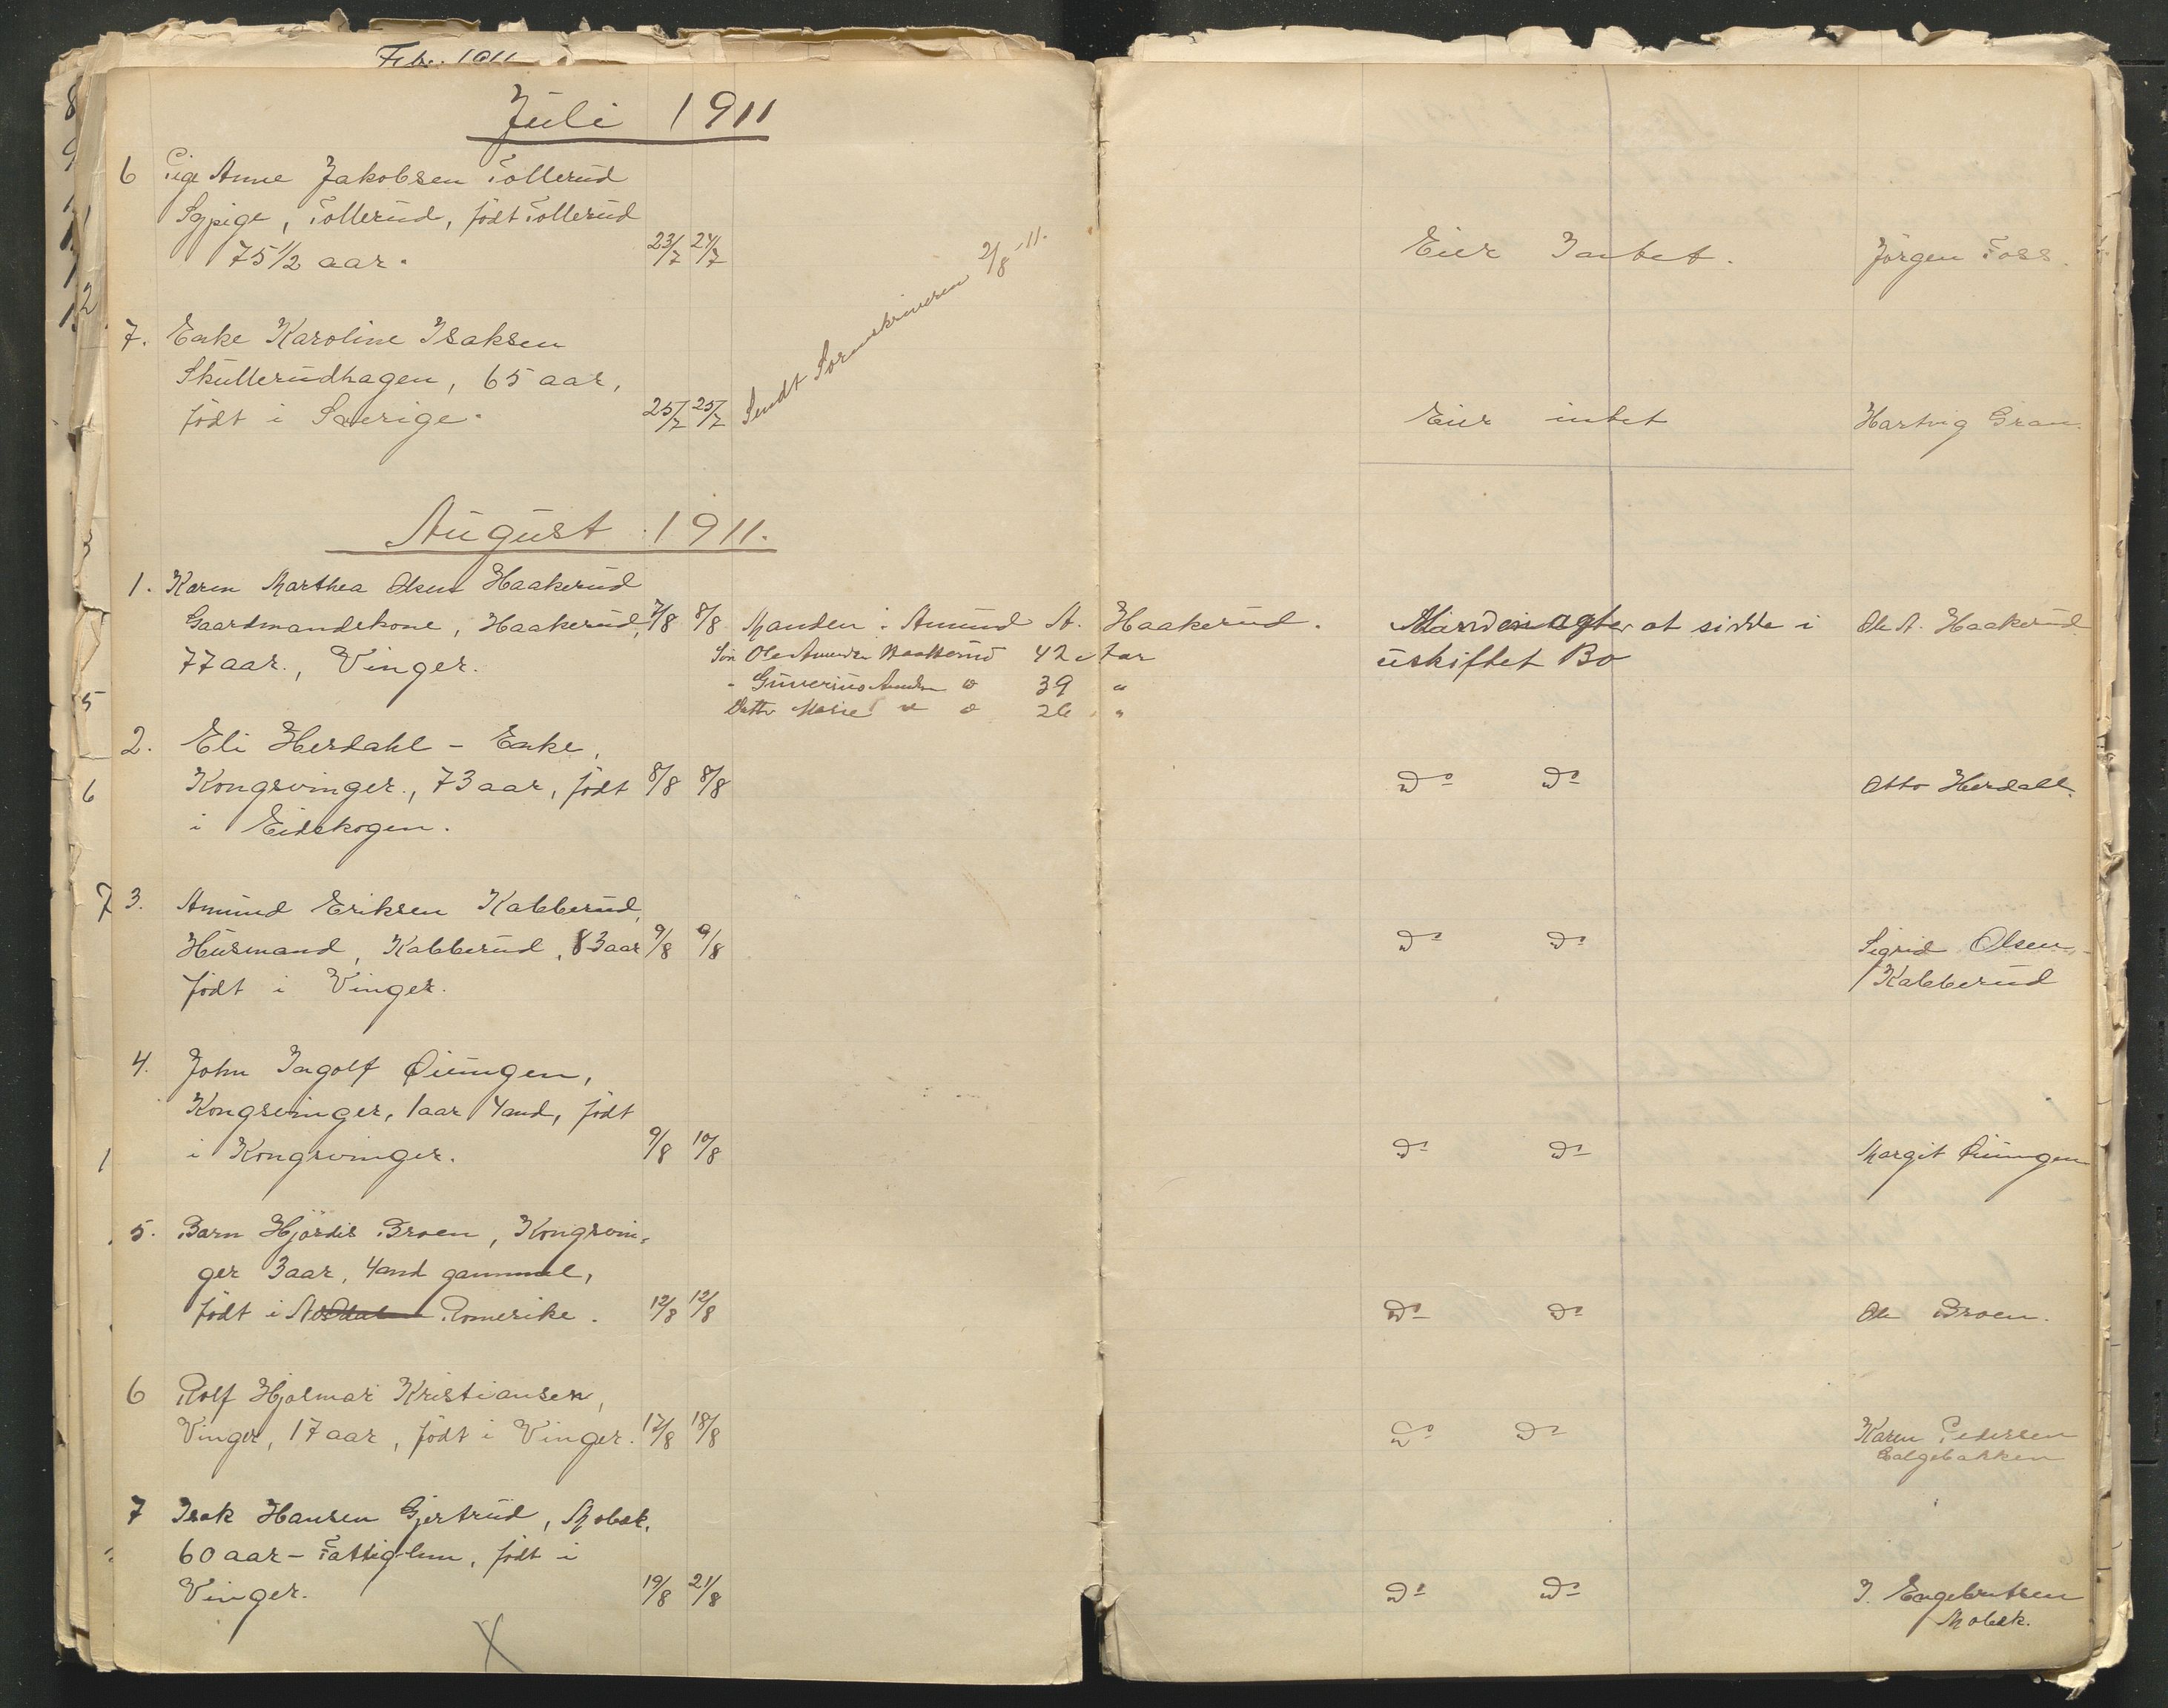 Feb. 1911
Juli 1911
6 Pige Anne Jakobsen Tollerud
Sypige, Tollerud, født Tollerud
75 1/2 aar. 23/7 24/7 Eier Intet. Jörgen Foss.
Sendt Sorenskriveren 2/8-11.
7. Enke Karoline Isaksen
Skullerudhagen, 65 aar,
født i Sverige. 25/7 25/7 Eier intet Hartvig Gran.
August 1911.
1. Karen Marthea Olsen Haakerud
Gaardmandskone, Haakerud, 7/8 8/8 Manden: Amund A. Haakerud. Manden agter at sidde i Ole A. Haakerud
77 aar., Vinger. Søn Ole Amundsen Haakerud 42 Aar uskiftet Bo
- Gunerius Amundsen " 39 "
Datter Marie " " 26 "
2. Eli Herdahl - Enke,
Kongsvinger., 73 aar, født 8/8 8/8 Do Do Otto Herdahl.
i Eidskogen.
3. Amund Eriksen Kabberud,
Husmand, Kabberud, 83 aar 9/8 9/8 Do Do Sigrid Olsen
født i Vinger. Kabberud
4. John Ingolf Øiungen,
Kongsvinger, 1 aar 4 md, født
i Kongsvinger. 9/8 10/8 Do Do Margit Øiungen
5. Barn Hjördis Broen, Kongsvin-
ger 3 aar, 4 md gammel,
født i Romerike. 12/8 12/8 Do Do Ole Broen.
6 Rolf Hjalmar Kristiansen,
Vinger, 17 aar, født i Vinger. 17/8 18/8 Do Do Karen Pedersen
Galgebakken
7 Isak Hansen Gjertrud, Mobæk,
60 aar - Fattiglem, født i
Vinger. 19/8 21/8 Do Do J. Engebretsen
Mobæk.
X